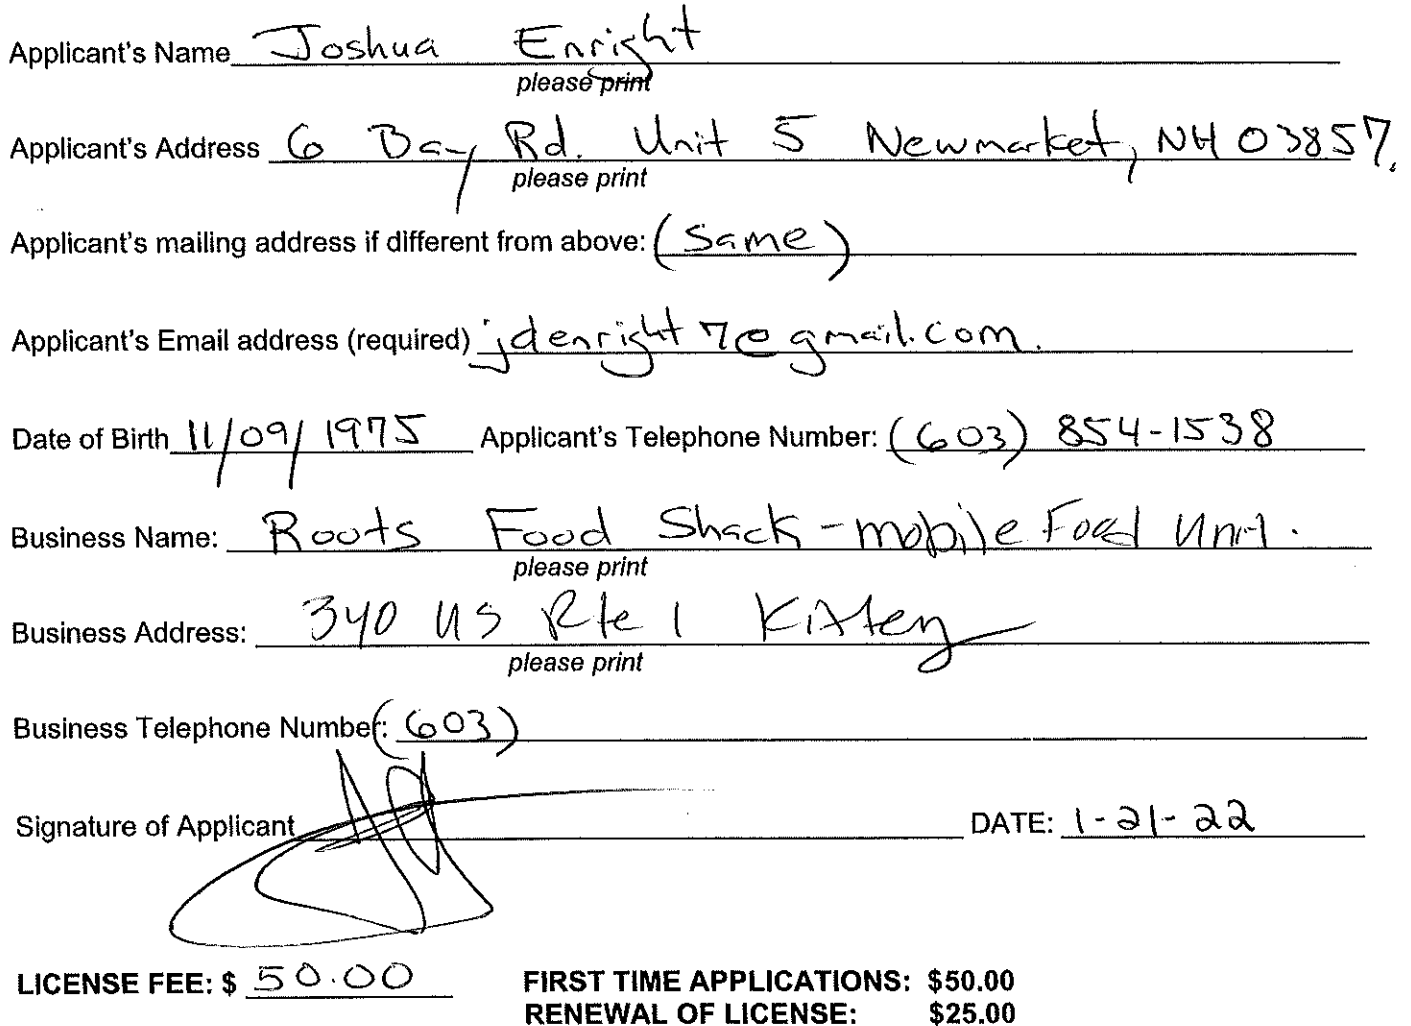 Applicant's Name Joshua Enright
please print
Applicant's Address 6 Bay Rd. Unit 5 Newmarket, NH 03857.
please print
Applicant's mailing address if different from above: (same)
Applicant's Email address (required) jdenright7@gmail.com.
Date of Birth 11/09/1975 Applicant's Telephone Number: (603) 854-1538
Business Name: Roots Food Shack - mobile Food Unit.
please print
Business Address: 340 US Rte 1 Kittery
please print
Business Telephone Number: (603)
Signature of Applicant DATE: 1-21-22
LICENSE FEE: $ 50.00 FIRST TIME APPLICATIONS: $50.00
RENEWAL OF LICENSE: $25.00